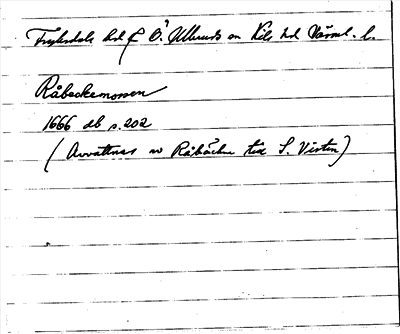 Fryksdals hd f Ö. Ullerud sn Kils hd Värml. l.
Råbäckemossen
1666 db s. 202
(Avvattnas av Råbäcken till S. Visten)